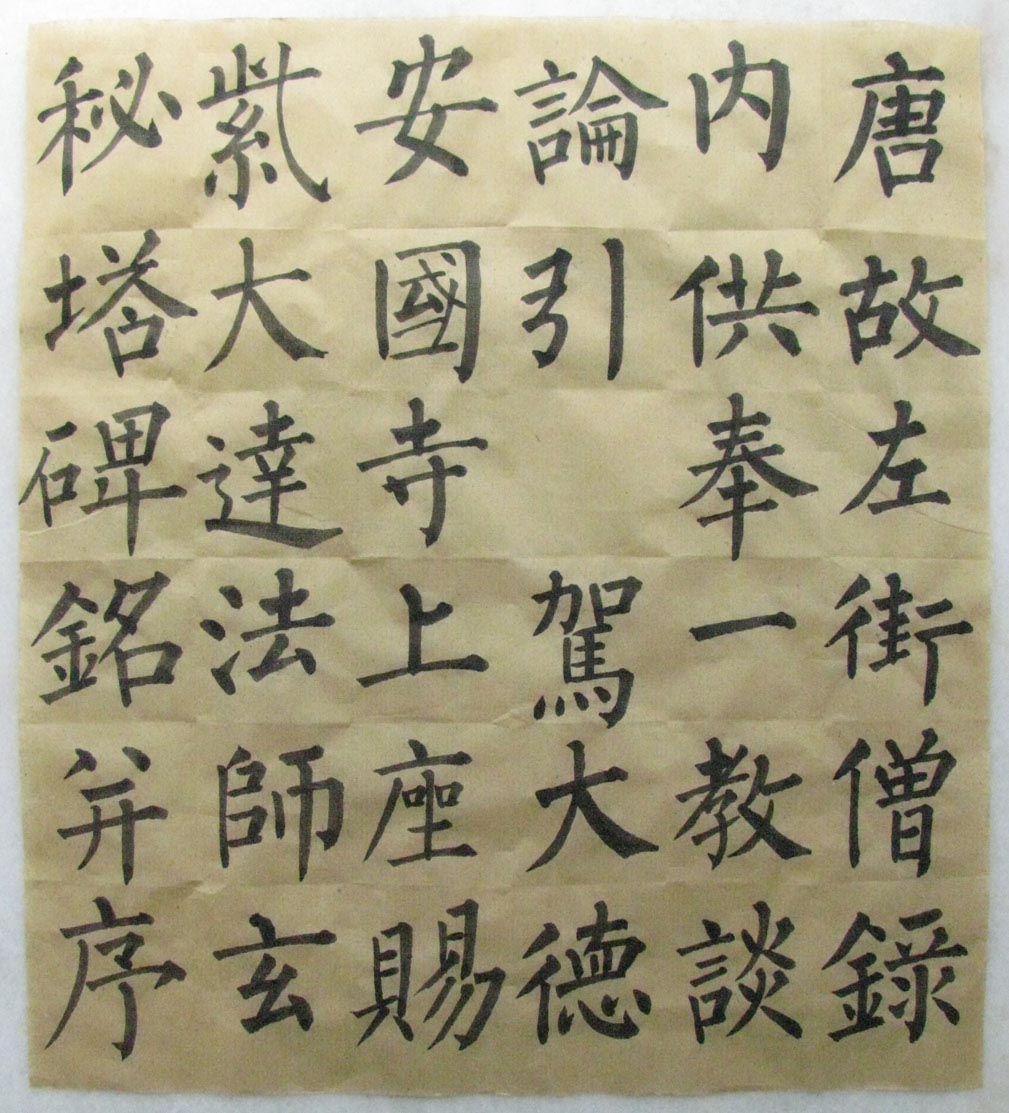 唐故左街僧錄
內供奉一教談
論引駕大德
安國寺上座賜
紫大達法師玄
秘塔碑銘并序